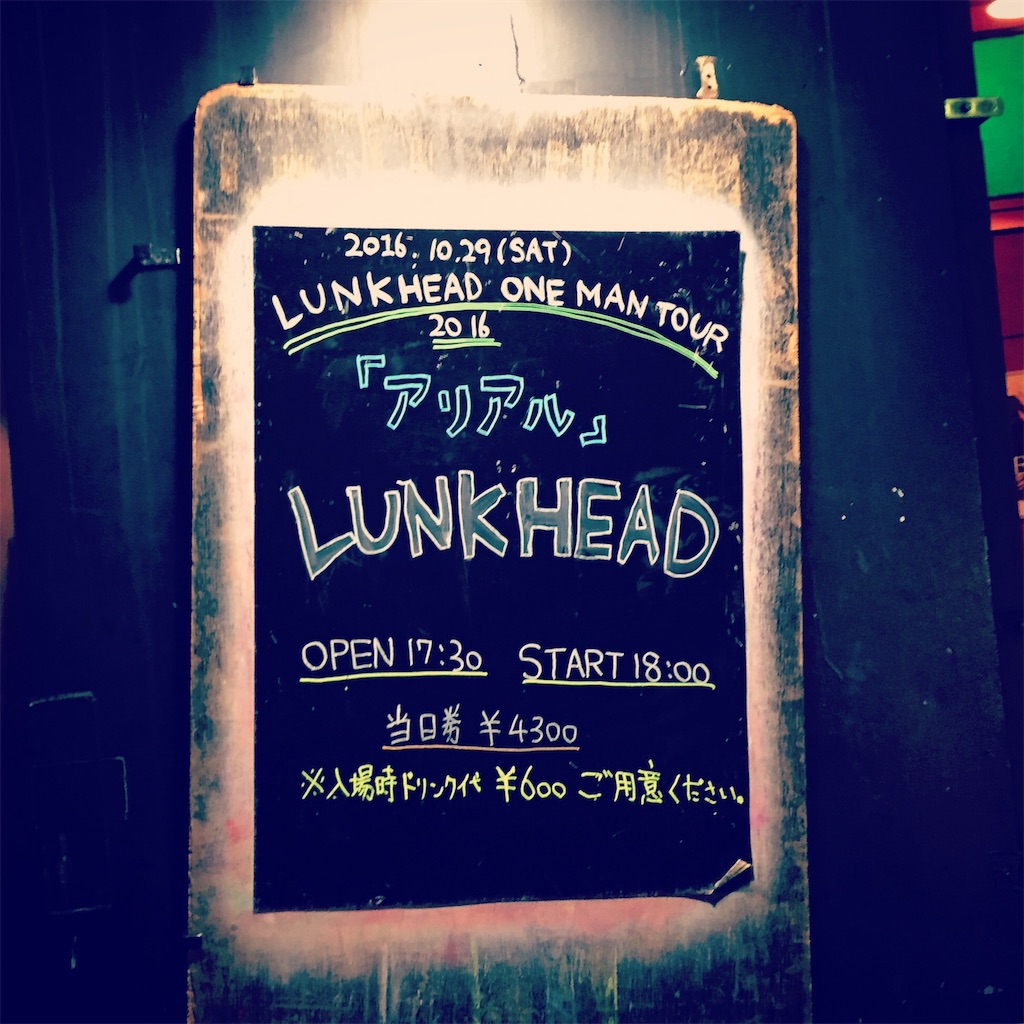 2016.10.29(SAT)
LUNKHEAD ONE MAN TOUR
2016
『アリアル』
LUNKHEAD
OPEN 17:30 START 18:00
当日券 ¥4300
※入場時ドリンク代 ¥600 ご用意ください。